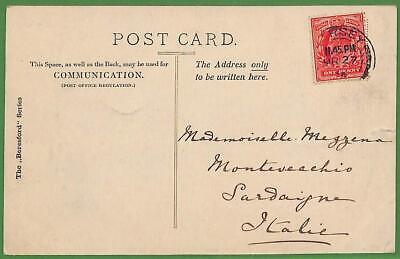 POST CARD.
This Space, as well as the Back, may be used for
COMMUNICATION.
(POST OFFICE REGULATION.)
The Address only
to be written here.
11.45 PM
27
ONE PENNY
The „Beresford" Series
Mademoiselle Mezzena
Montevecchio
Sardaigne
Italie